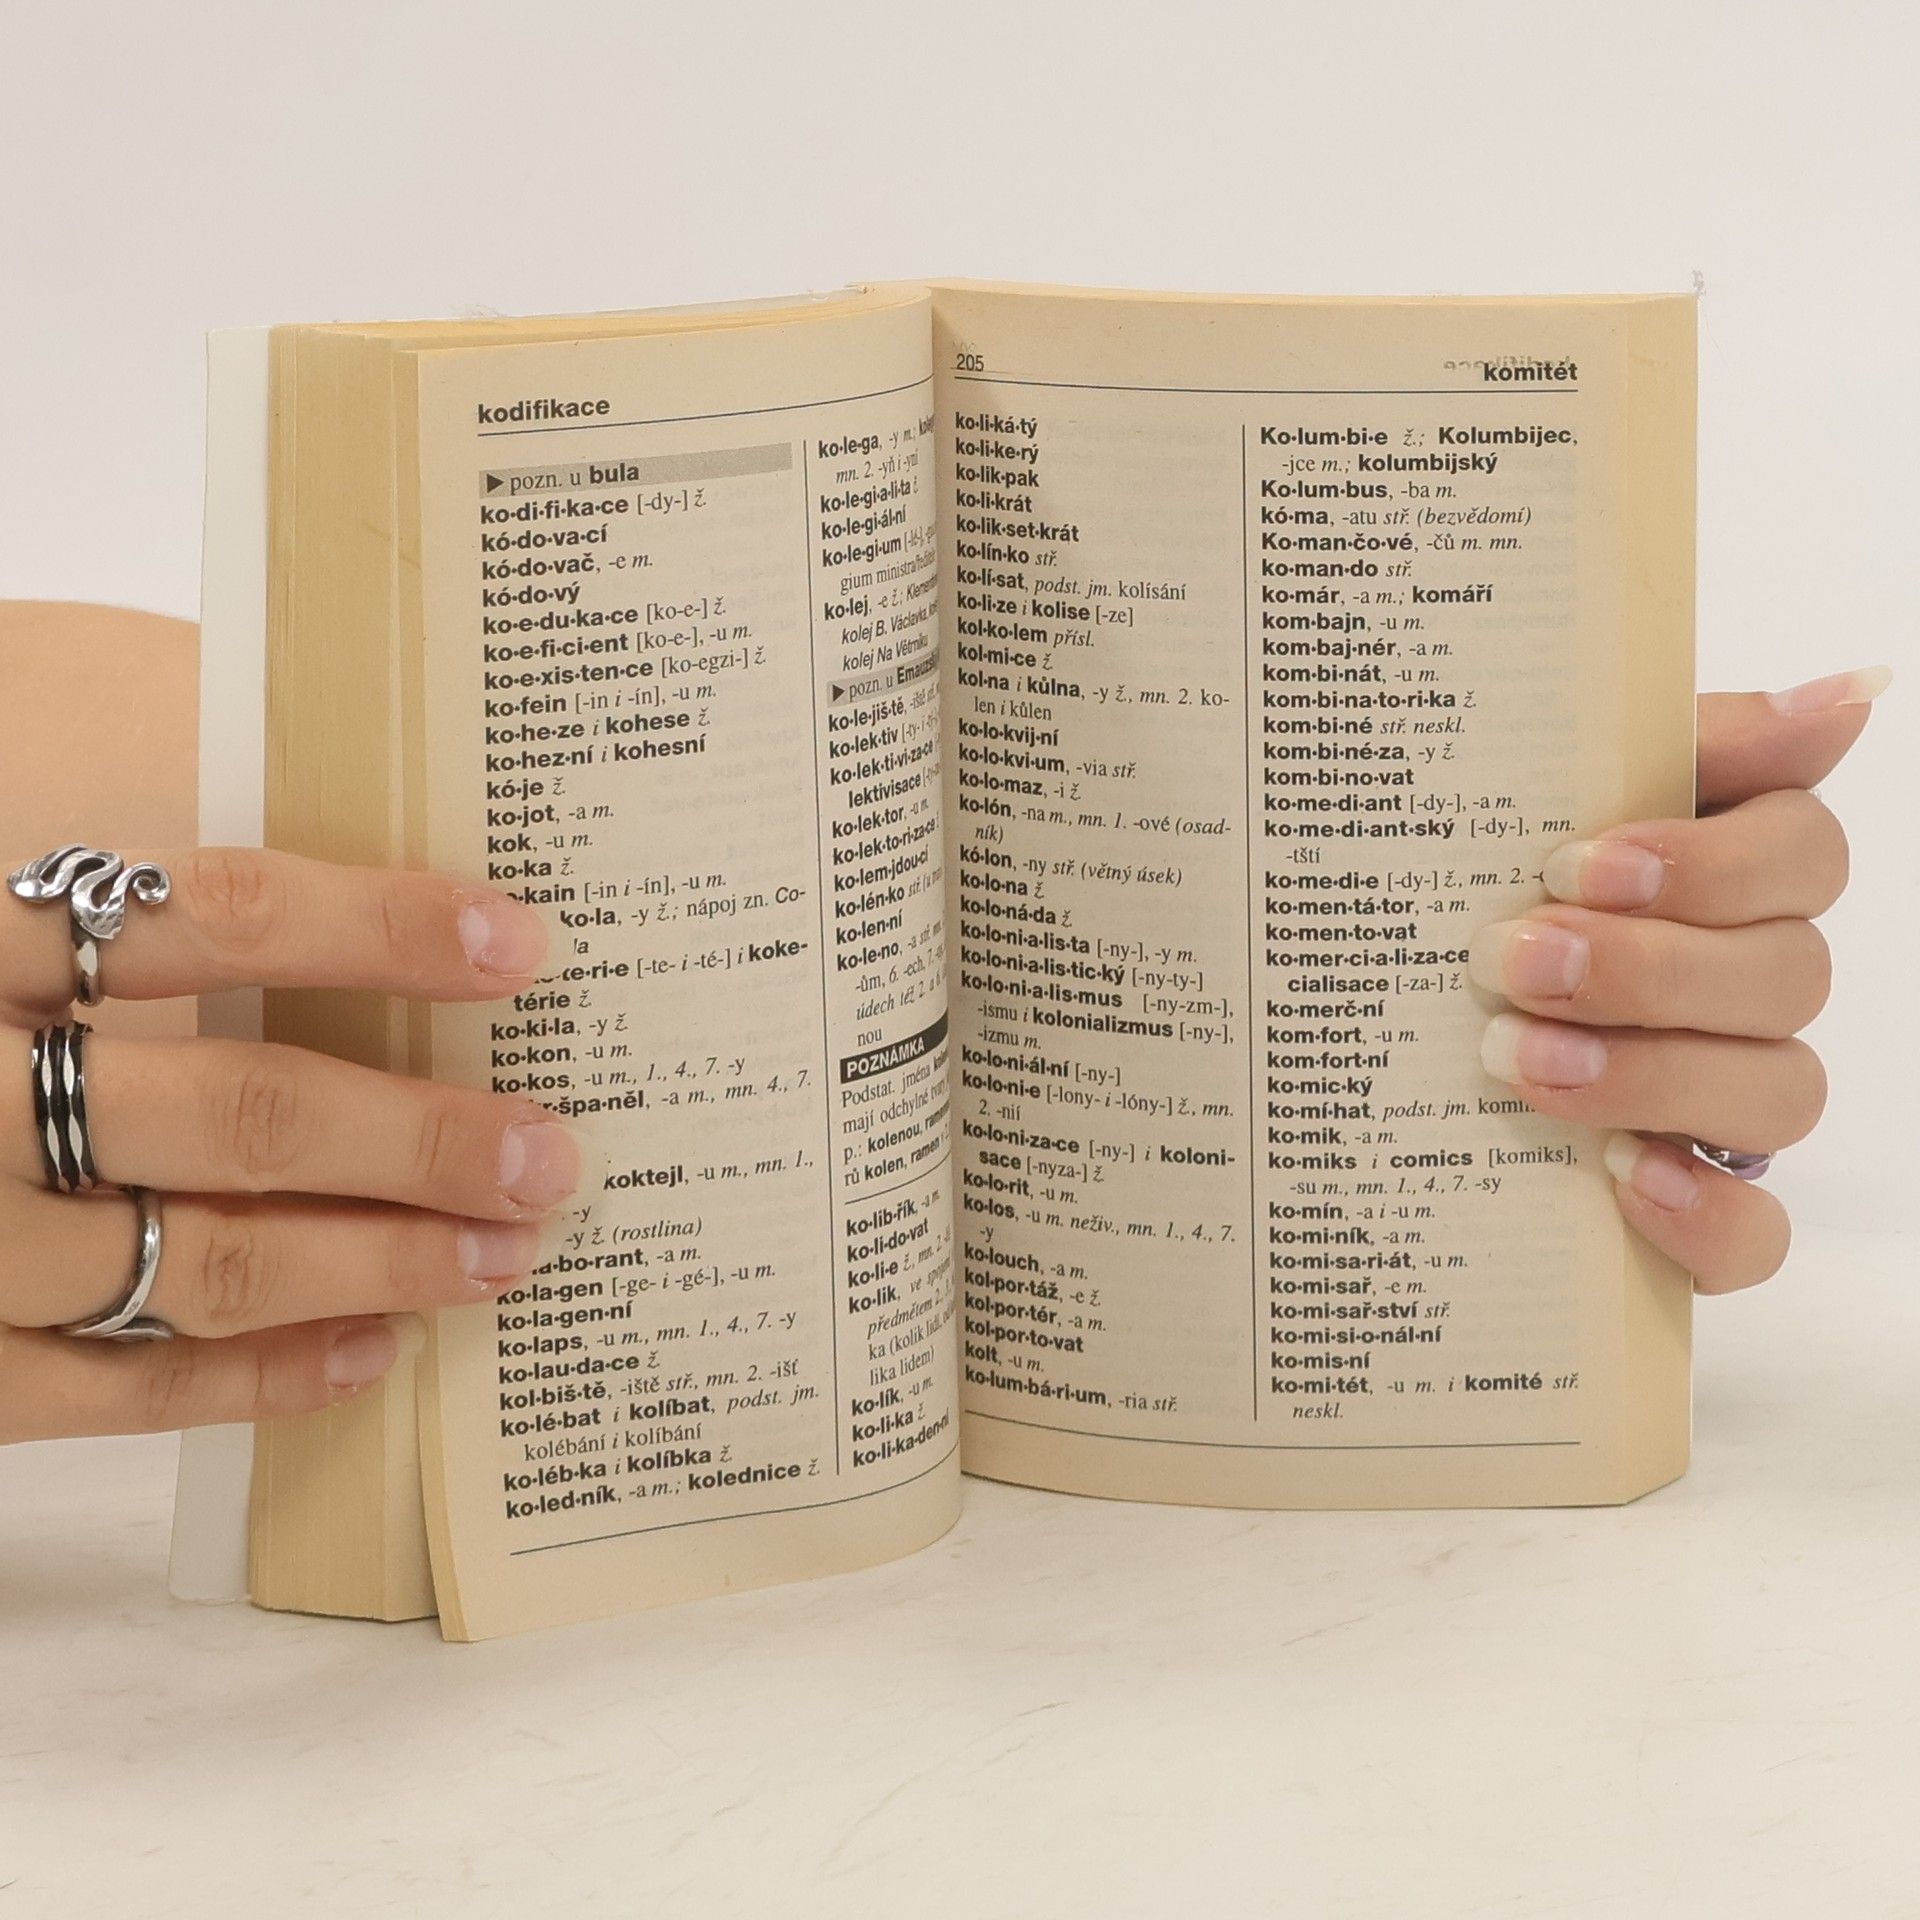 kodifikace
▶ pozn. u bula
ko·di·fi·ka·ce [-dy-] ž.
kó·do·va·cí
kó·do·vač, -e m.
kó·do·vý
ko·e·du·ka·ce [ko-e-] ž.
ko·e·fi·ci·ent [ko-e-], -u m.
ko·e·xis·ten·ce [ko-egzi-] ž.
ko·fein [-in i -ín], -u m.
ko·he·ze i kohese ž.
ko·hez·ní i kohesní
kó·je ž.
ko·jot, -a m.
kok, -u m.
ko·ka ž.
kain [-in i -ín], -u m.
ko·la, -y ž.; nápoj zn. Co-
la
te·ri·e [-te- i -té-] i koke-
térie ž.
ko·ki·la, -y ž.
ko·kon, -u m.
ko·kos, -u m., 1., 4., 7. -y
špa·něl, -a m., mn. 4., 7.
koktejl, -u m., mn. 1.,
-y
-y ž. (rostlina)
bo·rant, -a m.
ko·la·gen [-ge- i -gé-], -u m.
ko·la·gen·ní
ko·laps, -u m., mn. 1., 4., 7. -y
ko·lau·da·ce ž.
kol·biš·tě, -iště stř., mn. 2. -išť
ko·lé·bat i kolíbat, podst. jm.
kolébání i kolíbání
ko·léb·ka i kolíbka ž.
ko·led·ník, -a m.; kolednice ž.
ko·le·ga, -y m.;
mn. 2. -yň i -yní
ko·le·gi·a·li·ta ž.
ko·le·gi·ál·ní
ko·le·gi·um [-lé-],
gium ministra/ředitele
ko·lej, -e ž.;
kolej B. Václavka,
kolej Na Větrníku
▶ pozn. u
ko·le·jiš·tě, -iště
ko·lek·tiv
ko·lek·ti·vi·za·ce
lektivisace
ko·lek·tor, -u m.
ko·lek·to·ri·za·ce
ko·lem·jdou·cí
ko·lén·ko stř.
ko·len·ní
ko·le·no, -a stř.
-ům, 6. -ech, 7.
údech též 2. a 6.
nou
POZNÁMKA
Podstat. jména
mají odchylné tvary
p.: kolenou,
rů kolen, ramen
ko·lib·řík, -a m.
ko·li·do·vat
ko·li·e ž., mn. 2.
ko·lik, ve spojení
předmětem 2., 3.,
ka (kolik lidí,
lika lidem)
ko·lík, -u m.
ko·li·ka ž.
ko·li·ka·den·ní
205
komitét
ko·li·ká·tý
ko·li·ke·rý
ko·lik·pak
ko·li·krát
ko·lik·set·krát
ko·lín·ko stř.
ko·lí·sat, podst. jm. kolísání
ko·li·ze i kolise [-ze]
kol·ko·lem přísl.
kol·mi·ce ž.
kol·na i kůlna, -y ž., mn. 2. ko-
len i kůlen
ko·lo·kvij·ní
ko·lo·kvi·um, -via stř.
ko·lo·maz, -i ž.
ko·lón, -na m., mn. 1. -ové (osad-
ník)
kó·lon, -ny stř. (větný úsek)
ko·lo·na ž.
ko·lo·ná·da ž.
ko·lo·ni·a·lis·ta [-ny-], -y m.
ko·lo·ni·a·lis·tic·ký [-ny-ty-]
ko·lo·ni·a·lis·mus [-ny-zm-],
-ismu i kolonializmus [-ny-],
-izmu m.
ko·lo·ni·ál·ní [-ny-]
ko·lo·ni·e [-lony- i -lóny-] ž., mn.
2. -nií
ko·lo·ni·za·ce [-ny-] i koloni-
sace [-nyza-] ž.
ko·lo·rit, -u m.
ko·los, -u m. neživ., mn. 1., 4., 7.
-y
ko·louch, -a m.
kol·por·táž, -e ž.
kol·por·tér, -a m.
kol·por·to·vat
kolt, -u m.
ko·lum·bá·ri·um, -ria stř.
Ko·lum·bi·e ž.; Kolumbijec,
-jce m.; kolumbijský
Ko·lum·bus, -ba m.
kó·ma, -atu stř. (bezvědomí)
Ko·man·čo·vé, -čů m. mn.
ko·man·do stř.
ko·már, -a m.; komáří
kom·bajn, -u m.
kom·baj·nér, -a m.
kom·bi·nát, -u m.
kom·bi·na·to·ri·ka ž.
kom·bi·né stř. neskl.
kom·bi·né·za, -y ž.
kom·bi·no·vat
ko·me·di·ant [-dy-], -a m.
ko·me·di·ant·ský [-dy-], mn.
-tští
ko·me·di·e [-dy-] ž., mn. 2.
ko·men·tá·tor, -a m.
ko·men·to·vat
ko·mer·ci·a·li·za·ce
cialisace [-za-] ž.
ko·merč·ní
kom·fort, -u m.
kom·fort·ní
ko·mic·ký
ko·mí·hat, podst. jm.
ko·mik, -a m.
ko·miks i comics [komiks],
-su m., mn. 1., 4., 7. -sy
ko·mín, -a i -u m.
ko·mi·ník, -a m.
ko·mi·sa·ri·át, -u m.
ko·mi·sař, -e m.
ko·mi·sař·ství stř.
ko·mi·si·o·nál·ní
ko·mis·ní
ko·mi·tét, -u m. i komité stř.
neskl.